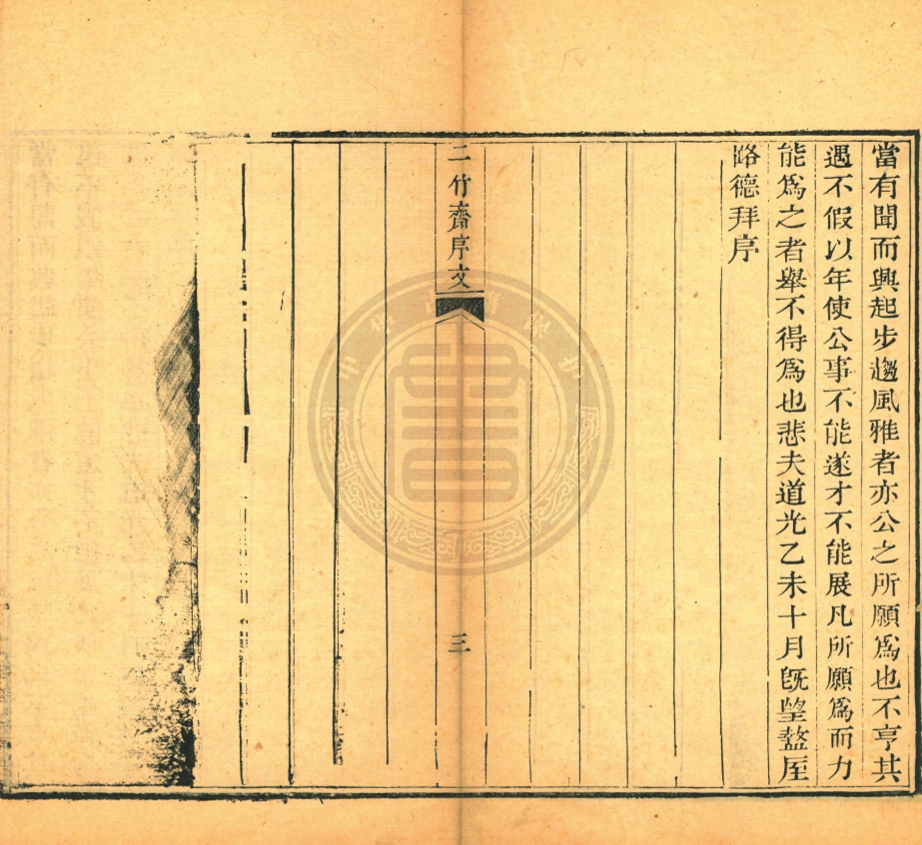 當有聞而興起步趨風雅者亦公之所願爲也不亨其
遇不假以年使公事不能遂才不能展凡所願爲而力
能爲之者舉不得爲也悲夫道光乙未十月既朢盩厔
路德拜序
二竹齋序文
三